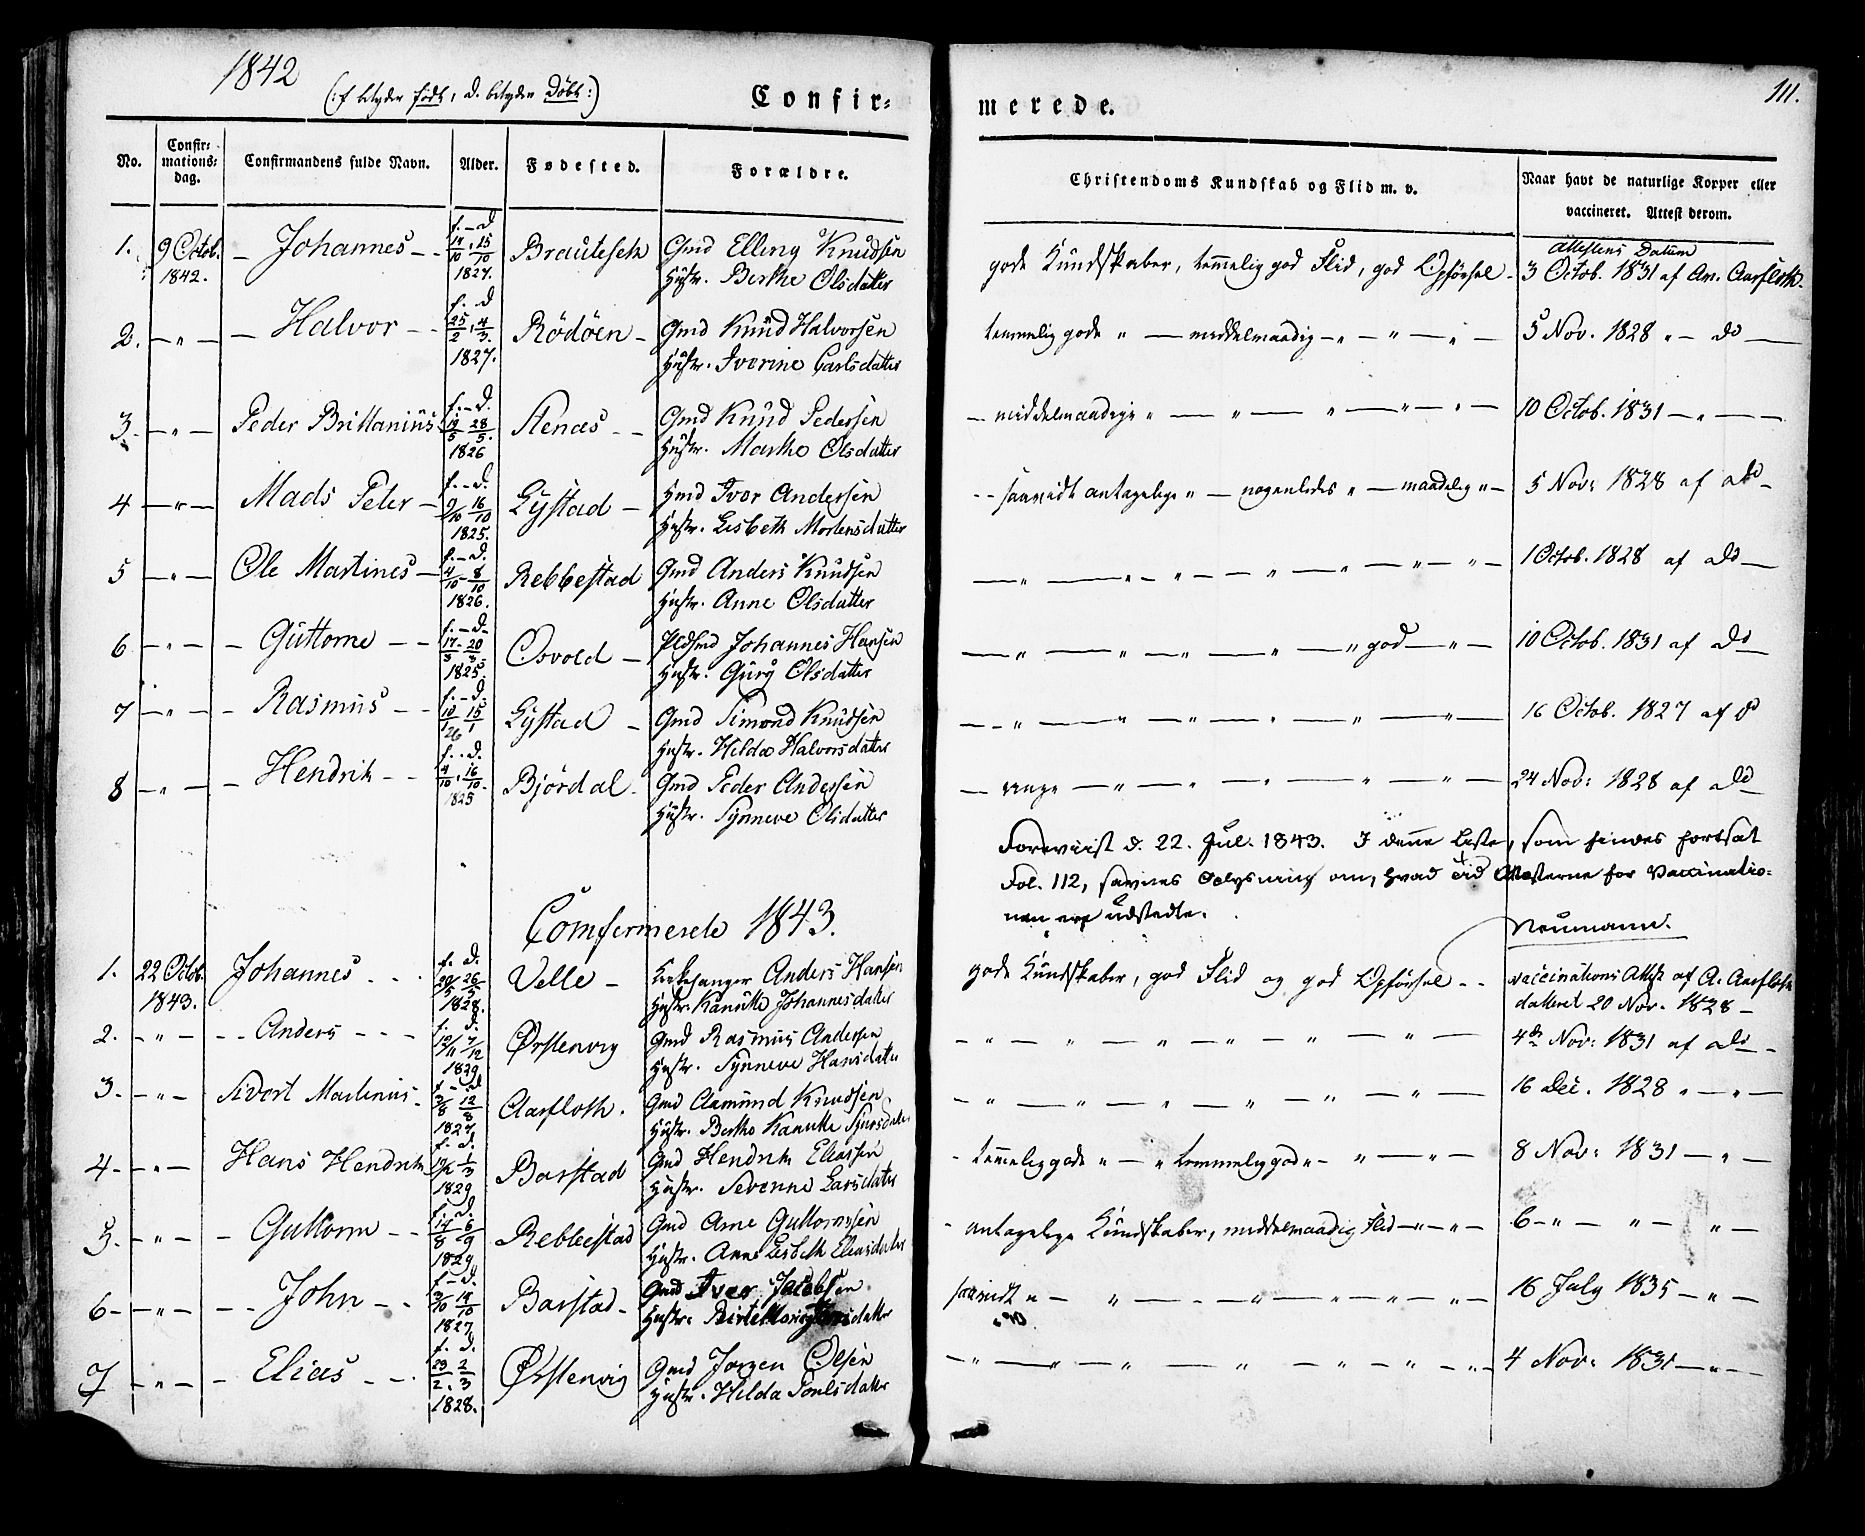 1842
(: f betyder født, d. betyder Døbt :)
Confir=
merede.
111.
No.
Confir=
mations=
dag.
Confirmandens fulde Navn.
Alder.
Fødested.
Forældre.
Christendoms Kundskab og Flid m. v.
Naar havt de naturlige Kopper eller
vaccineret. Attest derom.
1. 9 Octob. 1842. — Johannes — f. – d. 14/10 15/10 1827. Brauteseth Gmd Elling Knudsen
Hustr. Berthe Olsdatter
gode Kundskaber, temmelig god Flid, god Opførsel — Attestens Datum
3 Octob. 1831 af An. Aarfloth.
2. — " — — Halvor — f. d 25/2 4/3. 1827. Rödöen — Gmd Knud Halvorsen
Hustr. Iverine Carlsdatter
temmelig gode " — middelmaadig — " — " — " — 5 Nov. 1828 " — do —
3. — " — Peder Brittanius f. – d. 28/5. 1826 Stenæs — Gmd Knud Pedersen
Hustr. Marthe Olsdatter
— middelmaadige " — " — " — " — " — 10 Octob. 1831 — " —
4 — " — Mads Peter — f. – d. 9/10 16/10 1825. Lystad — Gmd Ivor Andersen
Hustr. Lisbeth Mortensdatter
saavidt antagelige " — nogenledes " — maadelig " — 5 Nov: 1828 af do —
5 — " — Ole Martines — f. – d. 4/10 8/10 1826. Rebbestad Gmd Anders Knudsen
Hustr. Anne Olsdatter
— " — " — " — " — " — " — " — 1 Octob. 1828 af do —
6 — " — — Guttorme — f. – d. 17/3 20/3 1825. Osvold — Pldsmd Johannes Hansen
Hustr. Gurÿ Olsdatter
— " — " — " — " — " god — " — 10 Octob. 1831 af do
7 — " — — Rasmus — f. – d. 10/1 15/1 26 Lystad — Gmd Simond Knudsen
Hustr. Hilda Halvorsdatter
— " — " — " — " — " — " — 16 Octob. 1827 af d
8 — " — — Hendrik — f. – d. 4/10 16/10. 1825 Björdal — Gmd Peder Andersen
Hustr. Synneve Olsdatter
— ringe — " — " — " — " — " — 24 Nov: 1828 af do
Foreviist d. 22. Jul. 1843. I denne Liste, som findes fortsat
Fol. 112, savnes Oplysning om, hvad Tid Attesterne for Vaccinatio-
nen ere udstedte.
Neumann.
Comfermerede 1843.
1. 22 Octob. 1843. Johannes — f. d. 20/5 26/5 1828. Velle — Kirkesanger Anders Hansen
Hustr. Kanutte Johannesdatter
gode Kundskaber, god Flid og god Opførsel — Vaccinations Attest af A. Aarfloth
datteret 20 Nov. 1828 —
2. — " — — Anders — f. d. 10/11 7/12 1829 Ørstenvig Gmd Rasmus Andersen
Hustr. Synneve Hansdatter
— " — " — " — " — " — " — " — 4de Nov: 1831 af do —
3. — " — Sivert Martinius — f – d 12/8 1827 Aarfloth. Gmd Aamund Knudsen
Hustr. Berthe Kanutte Sjursdatter
— " — " — " — " — " — " — " — 16 Dec. 1828 " — " —
4 — " — Hans Hendrik f. d. 1/3 1829 Barstad Gmd Hendrik Eliassen
Hustr. Severine Larsdatter
— temmelig gode " — " temmelig god " — " — " — 8 Nov: 1831 — " —
5. — " — — Guttorm — f. d. 14/8 6/9 1829 Rebbestad Gmd Arne Guttormsen
Hustr. Anne Lisbeth Eliasdatter
— antagelige Kundskaber, middelmaadig Flid — " — " — 6 — " — " — " —
6 — " — — John — f – d. 14/10 1827 Barstad — Gmd Iver Jacobsen
Hustr.
saavidt " — " — " — " — " — " — 16 July 1835 — " —
7 — " — — Elias — f. d. 23/2. 2/3 1828. Ørstenvig Gmd Jørgen Olsen
Hustr. Hilda Poulsdatter
— " — " — " — " — " — " — " — 4 Nov: 1831 — " —